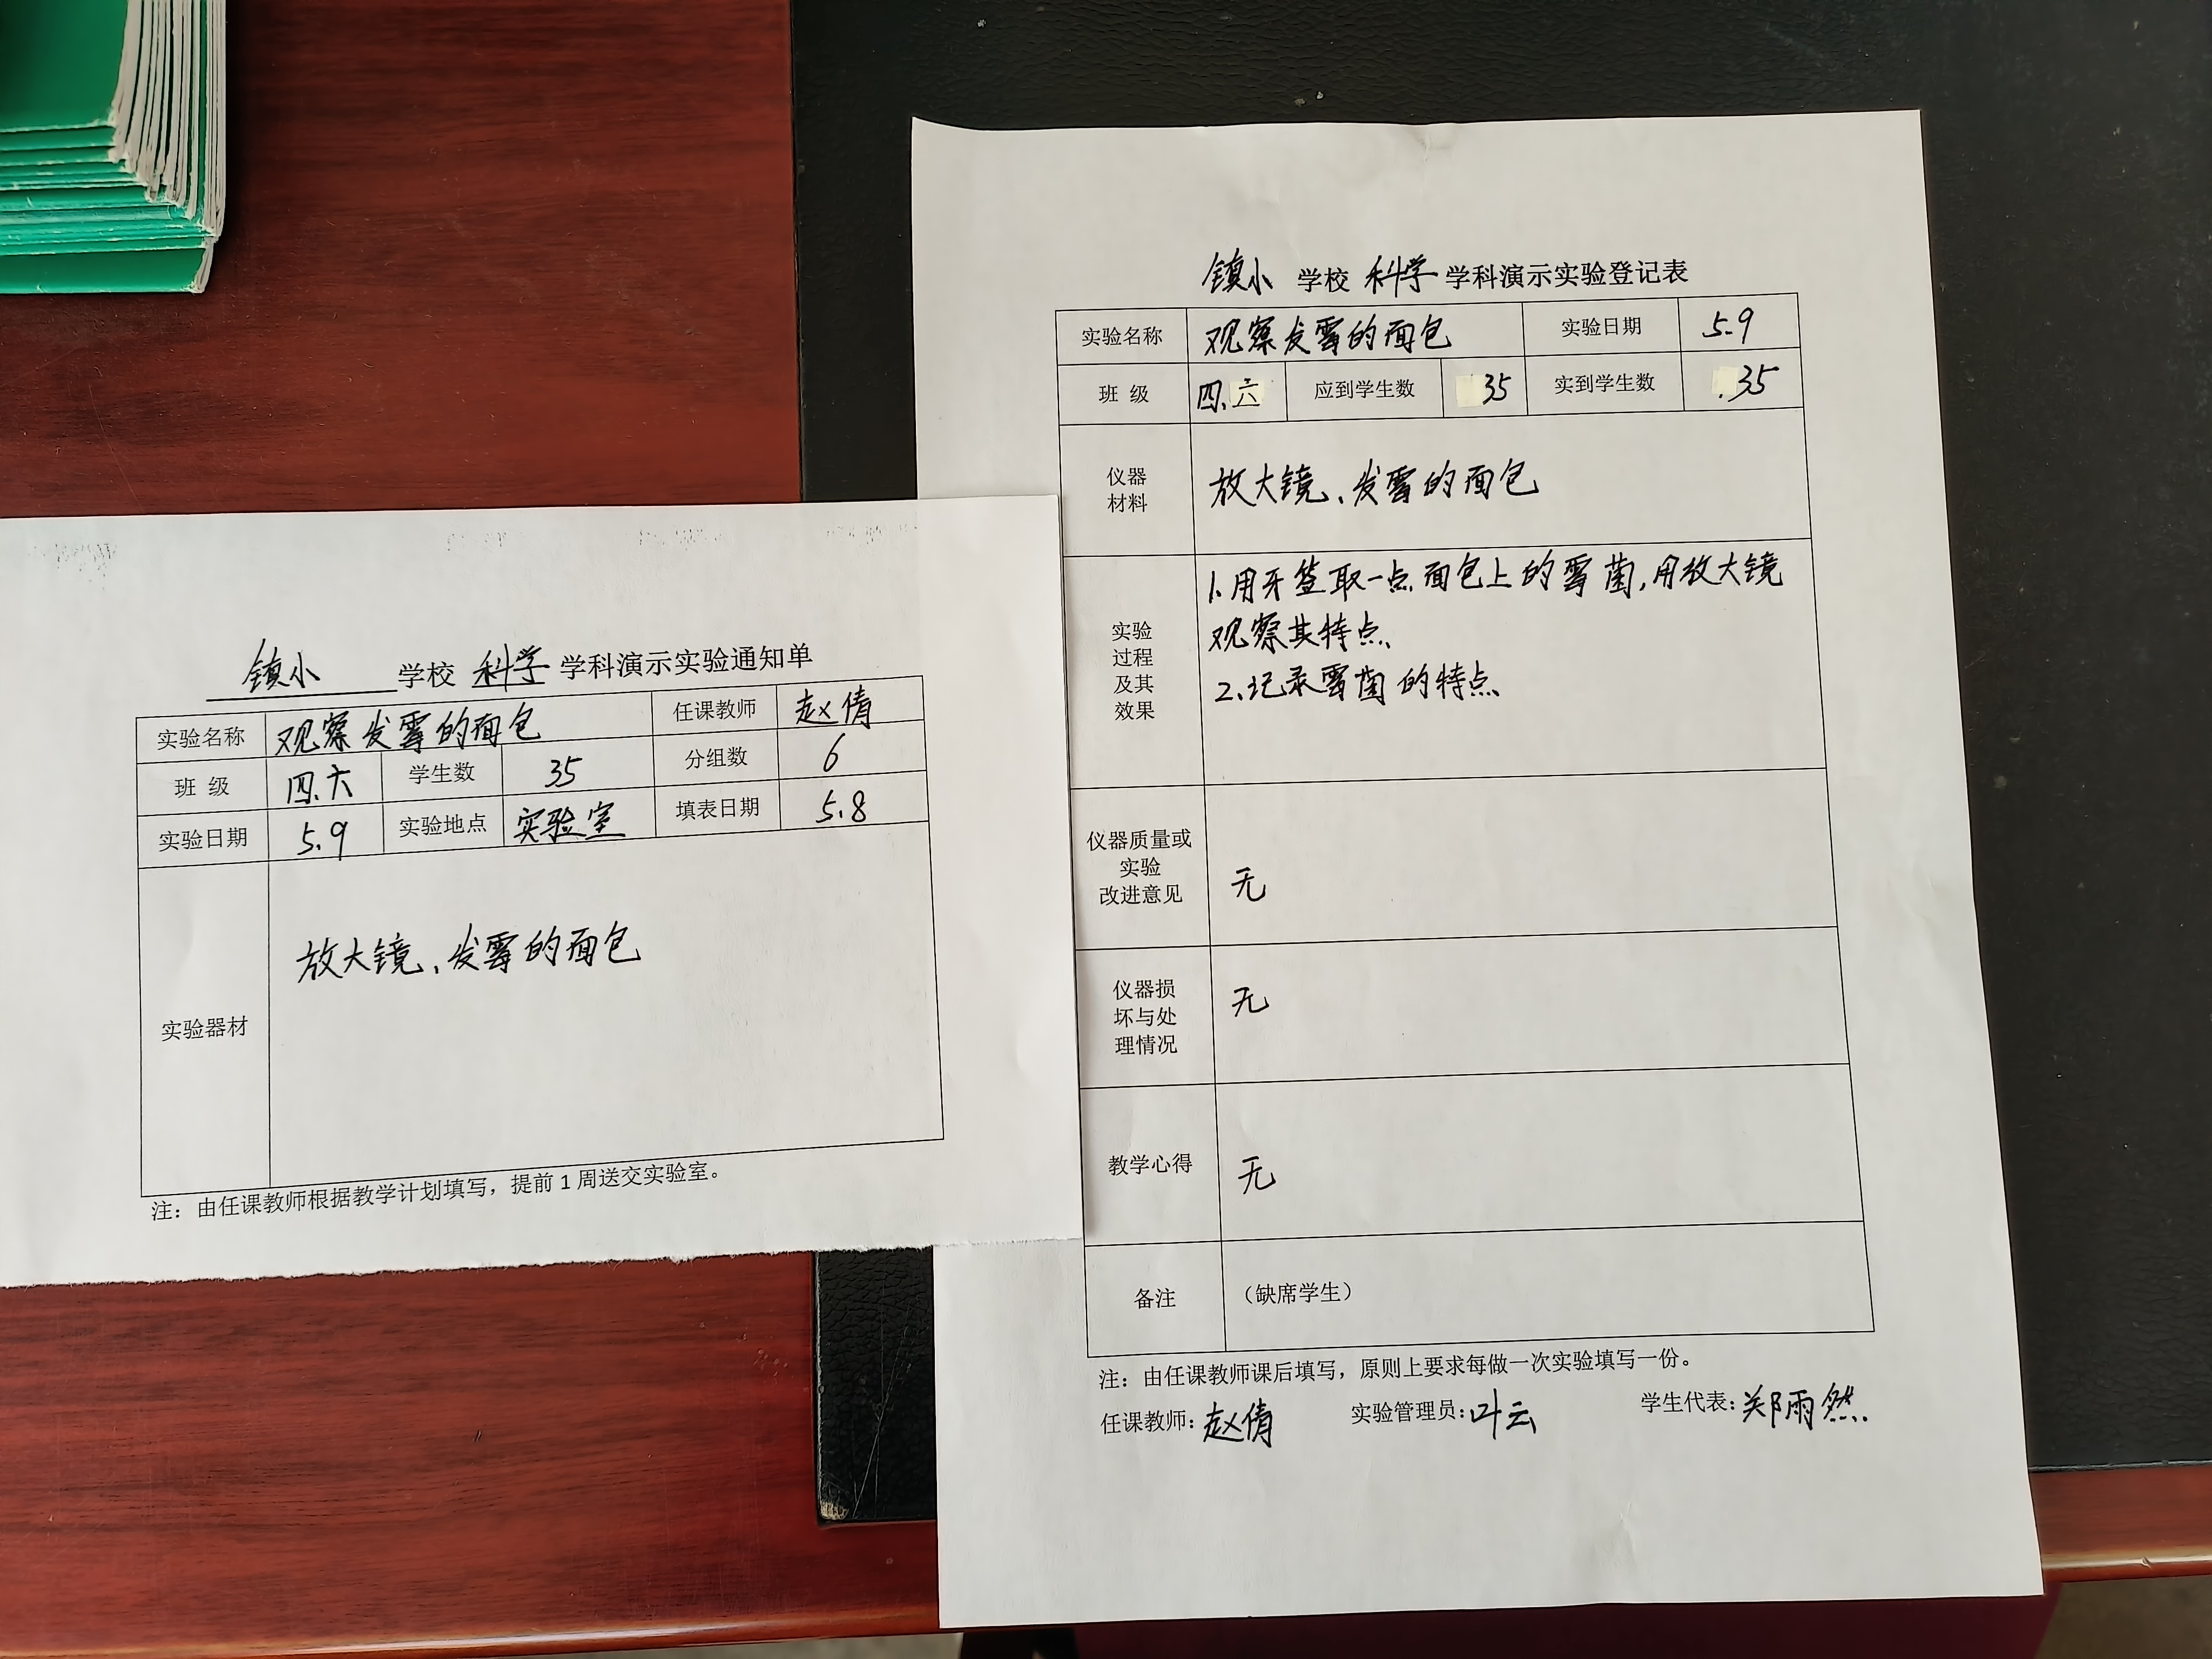 镇小 学校 科学 学科演示实验通知单
实验名称 观察发霉的面包 任课教师 赵倩
班 级 四.六 学生数 35 分组数 6
实验日期 5.9 实验地点 实验室 填表日期 5.8
实验器材 放大镜、发霉的面包
注：由任课教师根据教学计划填写，提前1周送交实验室。
镇小 学校 科学 学科演示实验登记表
实验名称 观察发霉的面包 实验日期 5.9
班 级 四.六 应到学生数 35 实到学生数 .35
仪器
材料
放大镜、发霉的面包
实验
过程
及其
效果
1.用牙签取一点面包上的霉菌,用放大镜
观察其特点、
2.记录霉菌的特点、
仪器质量或
实验
改进意见
无
仪器损
坏与处
理情况
无
教学心得 无
备注 （缺席学生）
注：由任课教师课后填写，原则上要求每做一次实验填写一份。
任课教师：赵倩 实验管理员：叶云 学生代表：郑雨然.